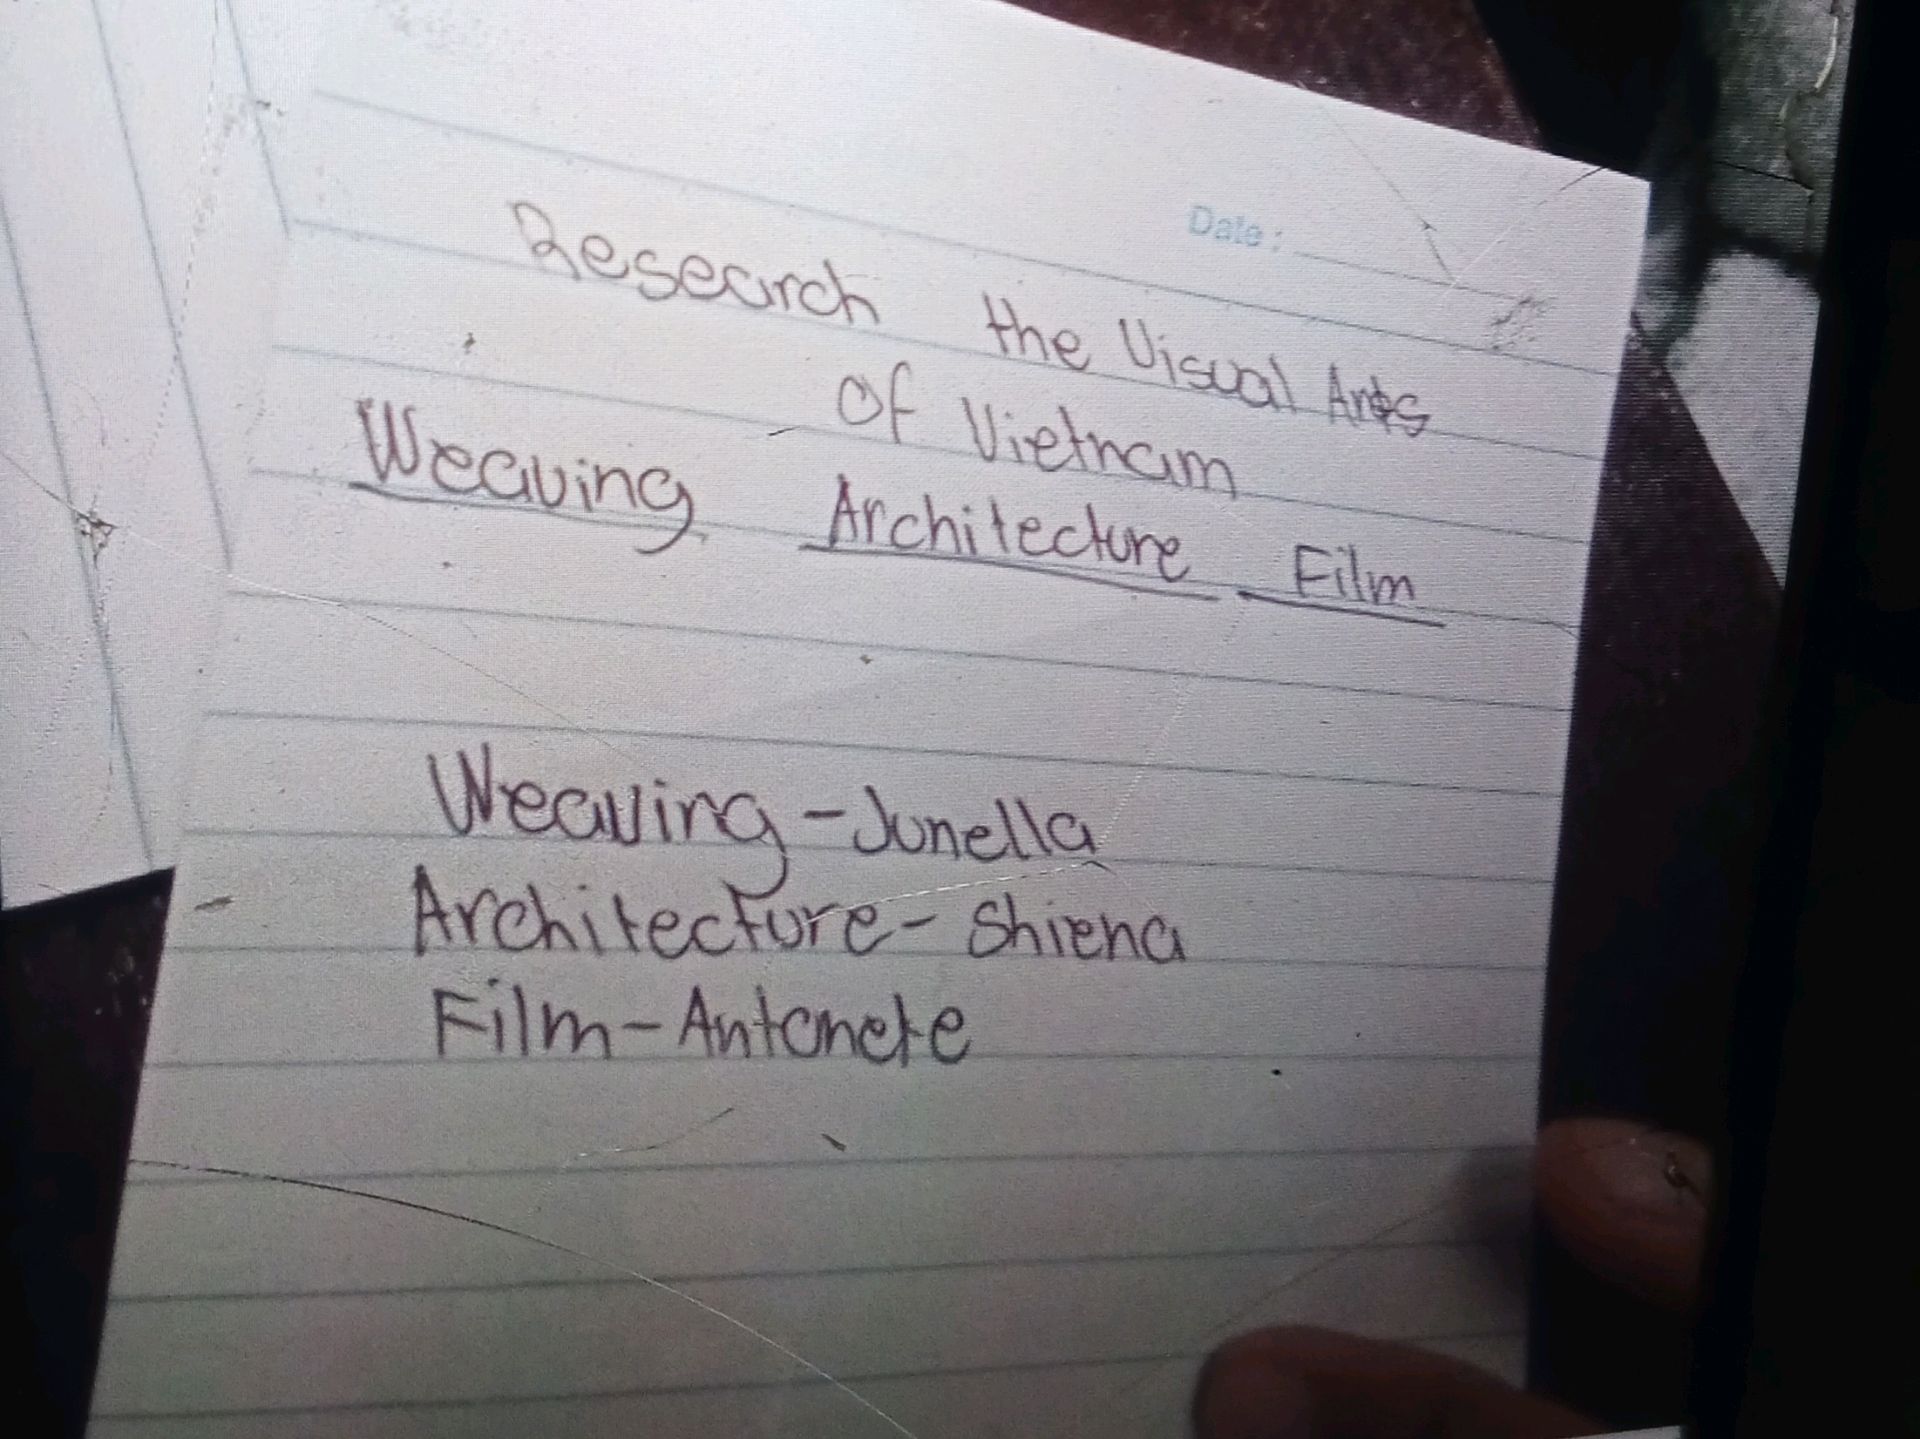 Date:
Research the Visual Arts
of Vietnam
Weaving Architecture Film
Weaving - Junella
Architecture - Shiena
Film - Antonete